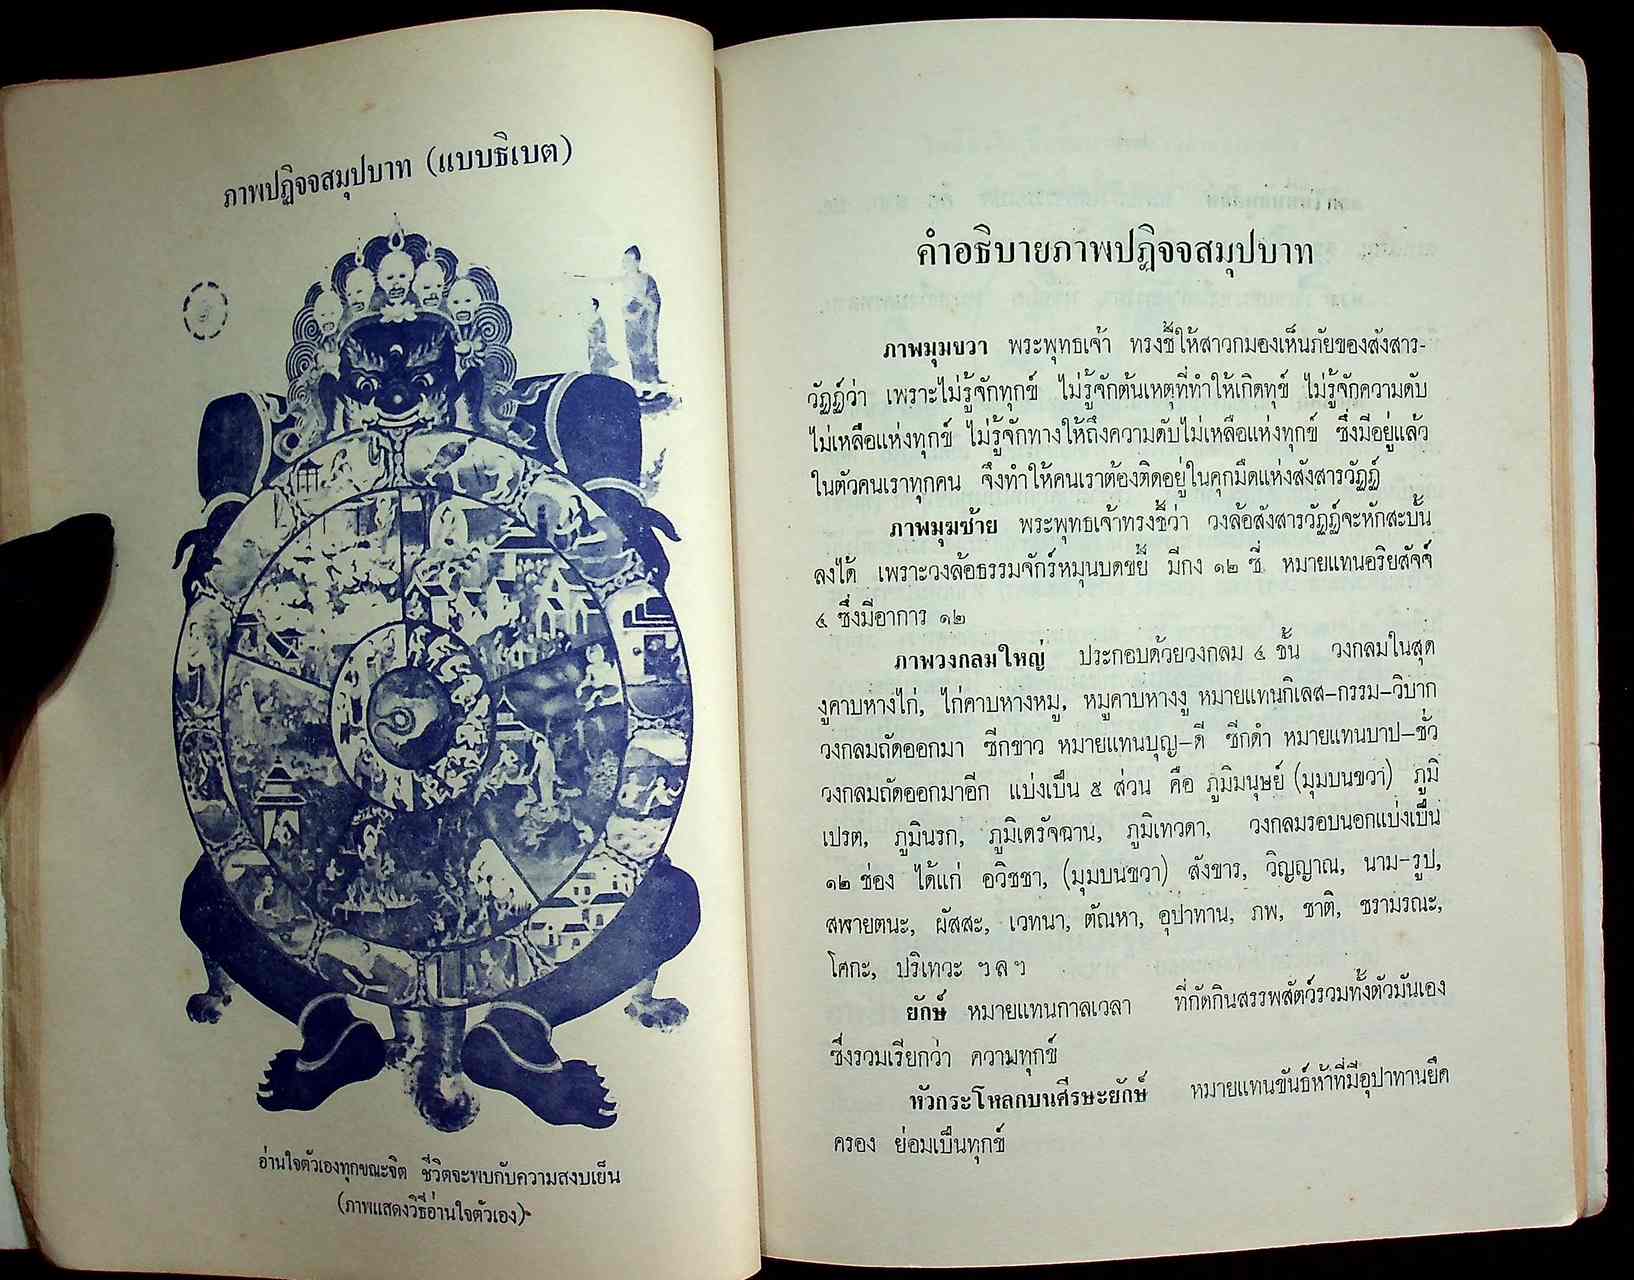 ภาพปฏิจจสมุปบาท (แบบธิเบต)
อ่านใจตัวเองทุกขณะจิต ชีวิตจะพบกับความสงบเย็น
(ภาพแสดงวิธีอ่านใจตัวเอง)
คำอธิบายภาพปฏิจจสมุปบาท
ภาพมุมขวา พระพุทธเจ้า ทรงชี้ให้สาวกมองเห็นภัยของสังสาร-
วัฏฏ์ว่า เพราะไม่รู้จักทุกข์ ไม่รู้จักต้นเหตุที่ทำให้เกิดทุข์ ไม่รู้จักความดับ
ไม่เหลือแห่งทุกข์ ไม่รู้จักทางให้ถึงความดับไม่เหลือแห่งทุกข์ ซึ่งมีอยู่แล้ว
ในตัวคนเราทุกคน จึงทำให้คนเราต้องติดอยู่ในคุกมืดแห่งสังสารวัฏฏ์
ภาพมุมซ้าย พระพุทธเจ้าทรงชี้ว่า วงล้อสังสารวัฏฏ์จะหักสะบั้น
ลงได้ เพราะวงล้อธรรมจักร์หมุนบดขยี้ มีกง ๑๒ ซี่ หมายแทนอริยสัจจ์
๔ ซึ่งมีอาการ ๑๒
ภาพวงกลมใหญ่ ประกอบด้วยวงกลม ๔ ชั้น วงกลมในสุด
งูคาบหางไก่, ไก่คาบหางหมู, หมูคาบหางงู หมายแทนกิเลส-กรรม-วิบาก
วงกลมถัดออกมา ซีกขาว หมายแทนบุญ-ดี ซีกดำ หมายแทนบาป-ชั่ว
วงกลมถัดออกมาอีก แบ่งเป็น ๕ ส่วน คือ ภูมิมนุษย์ (มุมบนขวา) ภูมิ
เปรต, ภูมินรก, ภูมิเดรัจฉาน, ภูมิเทวดา, วงกลมรอบนอกแบ่งเป็น
๑๒ ช่อง ได้แก่ อวิชชา, (มุมบนขวา) สังขาร, วิญญาณ, นาม-รูป,
สฬายตนะ, ผัสสะ, เวทนา, ตัณหา, อุปาทาน, ภพ, ชาติ, ชรามรณะ,
โศกะ, ปริเทวะ ฯลฯ
ยักษ์ หมายแทนกาลเวลา ที่กัดกินสรรพสัตว์รวมทั้งตัวมันเอง
ซึ่งรวมเรียกว่า ความทุกข์
หัวกระโหลกบนศีรษะยักษ์ หมายแทนขันธ์ห้าที่มีอุปาทานยึด
ครอง ย่อมเป็นทุกข์